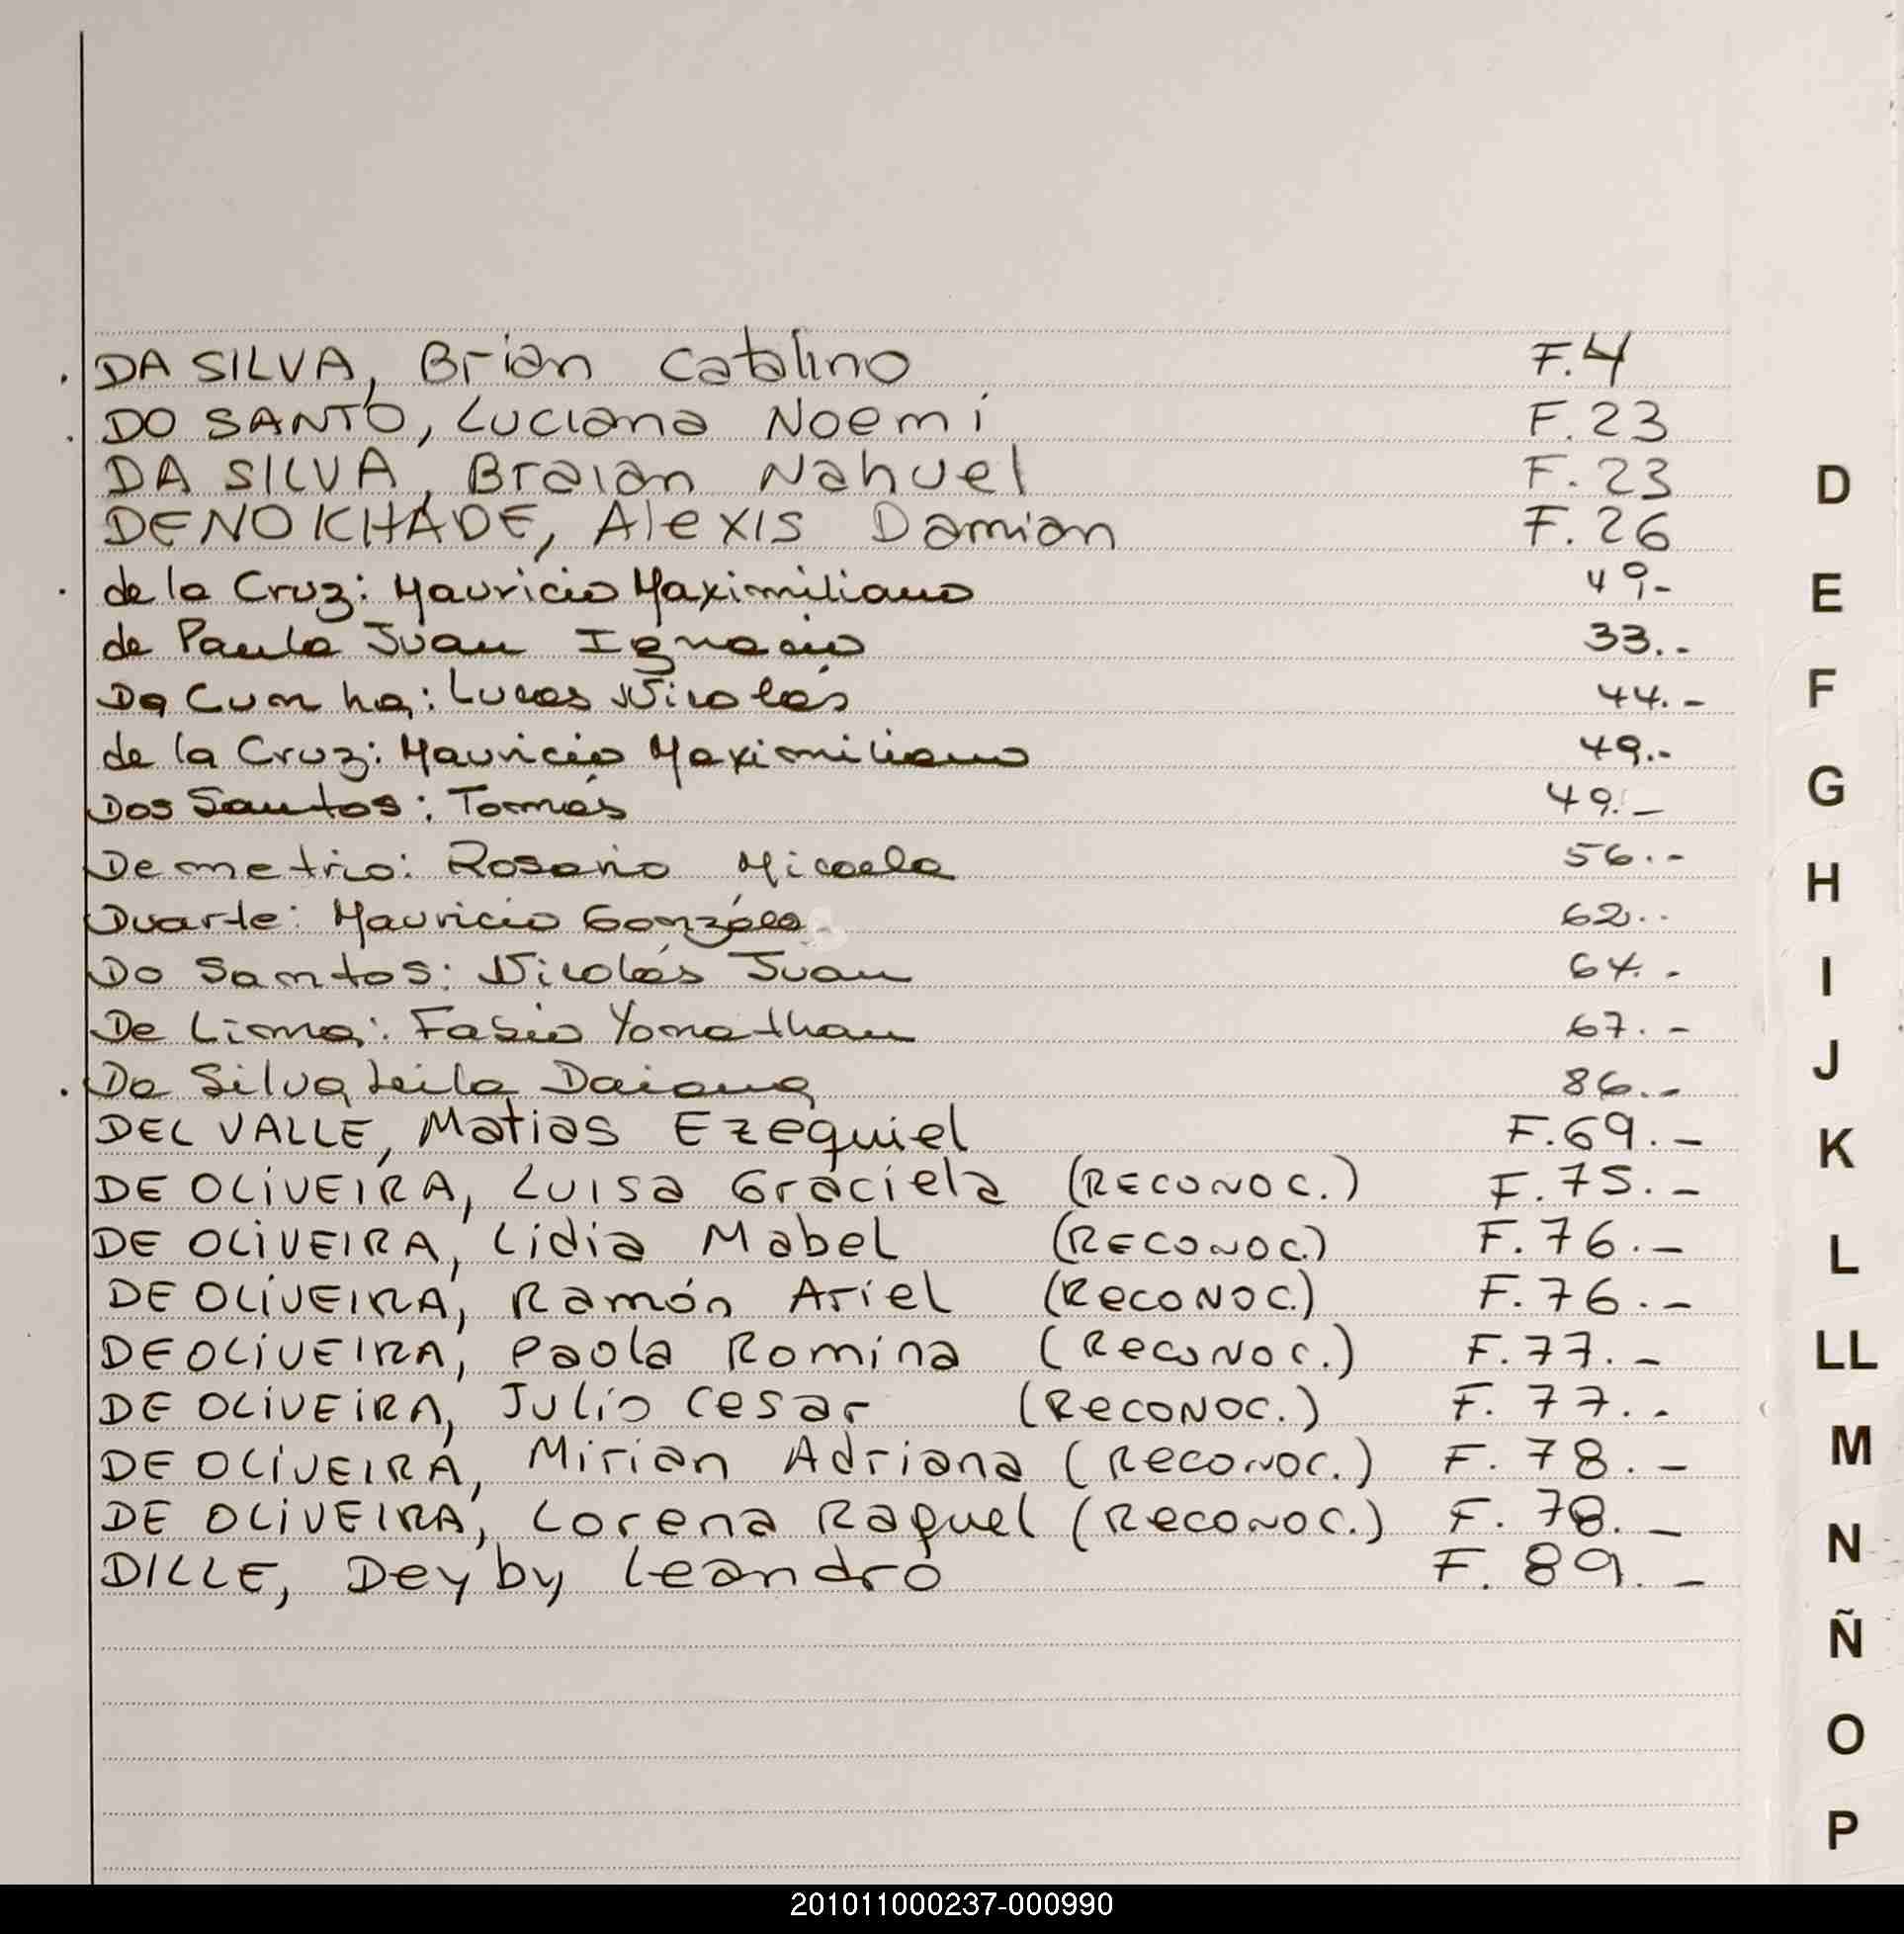 . DA SILVA, Brian Catalino F.4
. DO SANTO, Luciana Noemi F.23
DA SILVA, Braian Nahuel F.23
DENOKHADE, Alexis Damian F.26
. de la Cruz: Mauricio Maximiliano 49.-
de Paula Juan Ignacio 33.-
Da Cunha: Lucas Nicolás 44.-
de la Cruz: Mauricio Maximiliano 49.-
Dos Santos: Tomás 49.-
Demetrio: Rosario Micaela 56.-
Duarte: Mauricio Gonzálo 62..
Do Santos: Nicolás Juan 64.-
De Lima: Fabio Yonathan 67.-
. Da Silva Leila Daiana 86.-
DEL VALLE, Matias Ezequiel F.69.-
DE OLIVEIRA, Luisa Graciela (RECONOC.) F.75.-
DE OLIVEIRA, Lidia Mabel (RECONOC.) F.76.-
DE OLIVEIRA, Ramón Ariel (RECONOC.) F.76.-
DE OLIVEIRA, Paola Romina (RECONOC.) F.77.-
DE OLIVEIRA, Julio Cesar (RECONOC.) F.77.-
DE OLIVEIRA, Mirian Adriana (RECONOC.) F.78.-
DE OLIVEIRA, Lorena Raquel (RECONOC.) F.78.-
DILLE, Deyby Leandro F.89.-
D
E
F
G
H
I
J
K
L
LL
M
N
Ñ
O
P
201011000237-000990